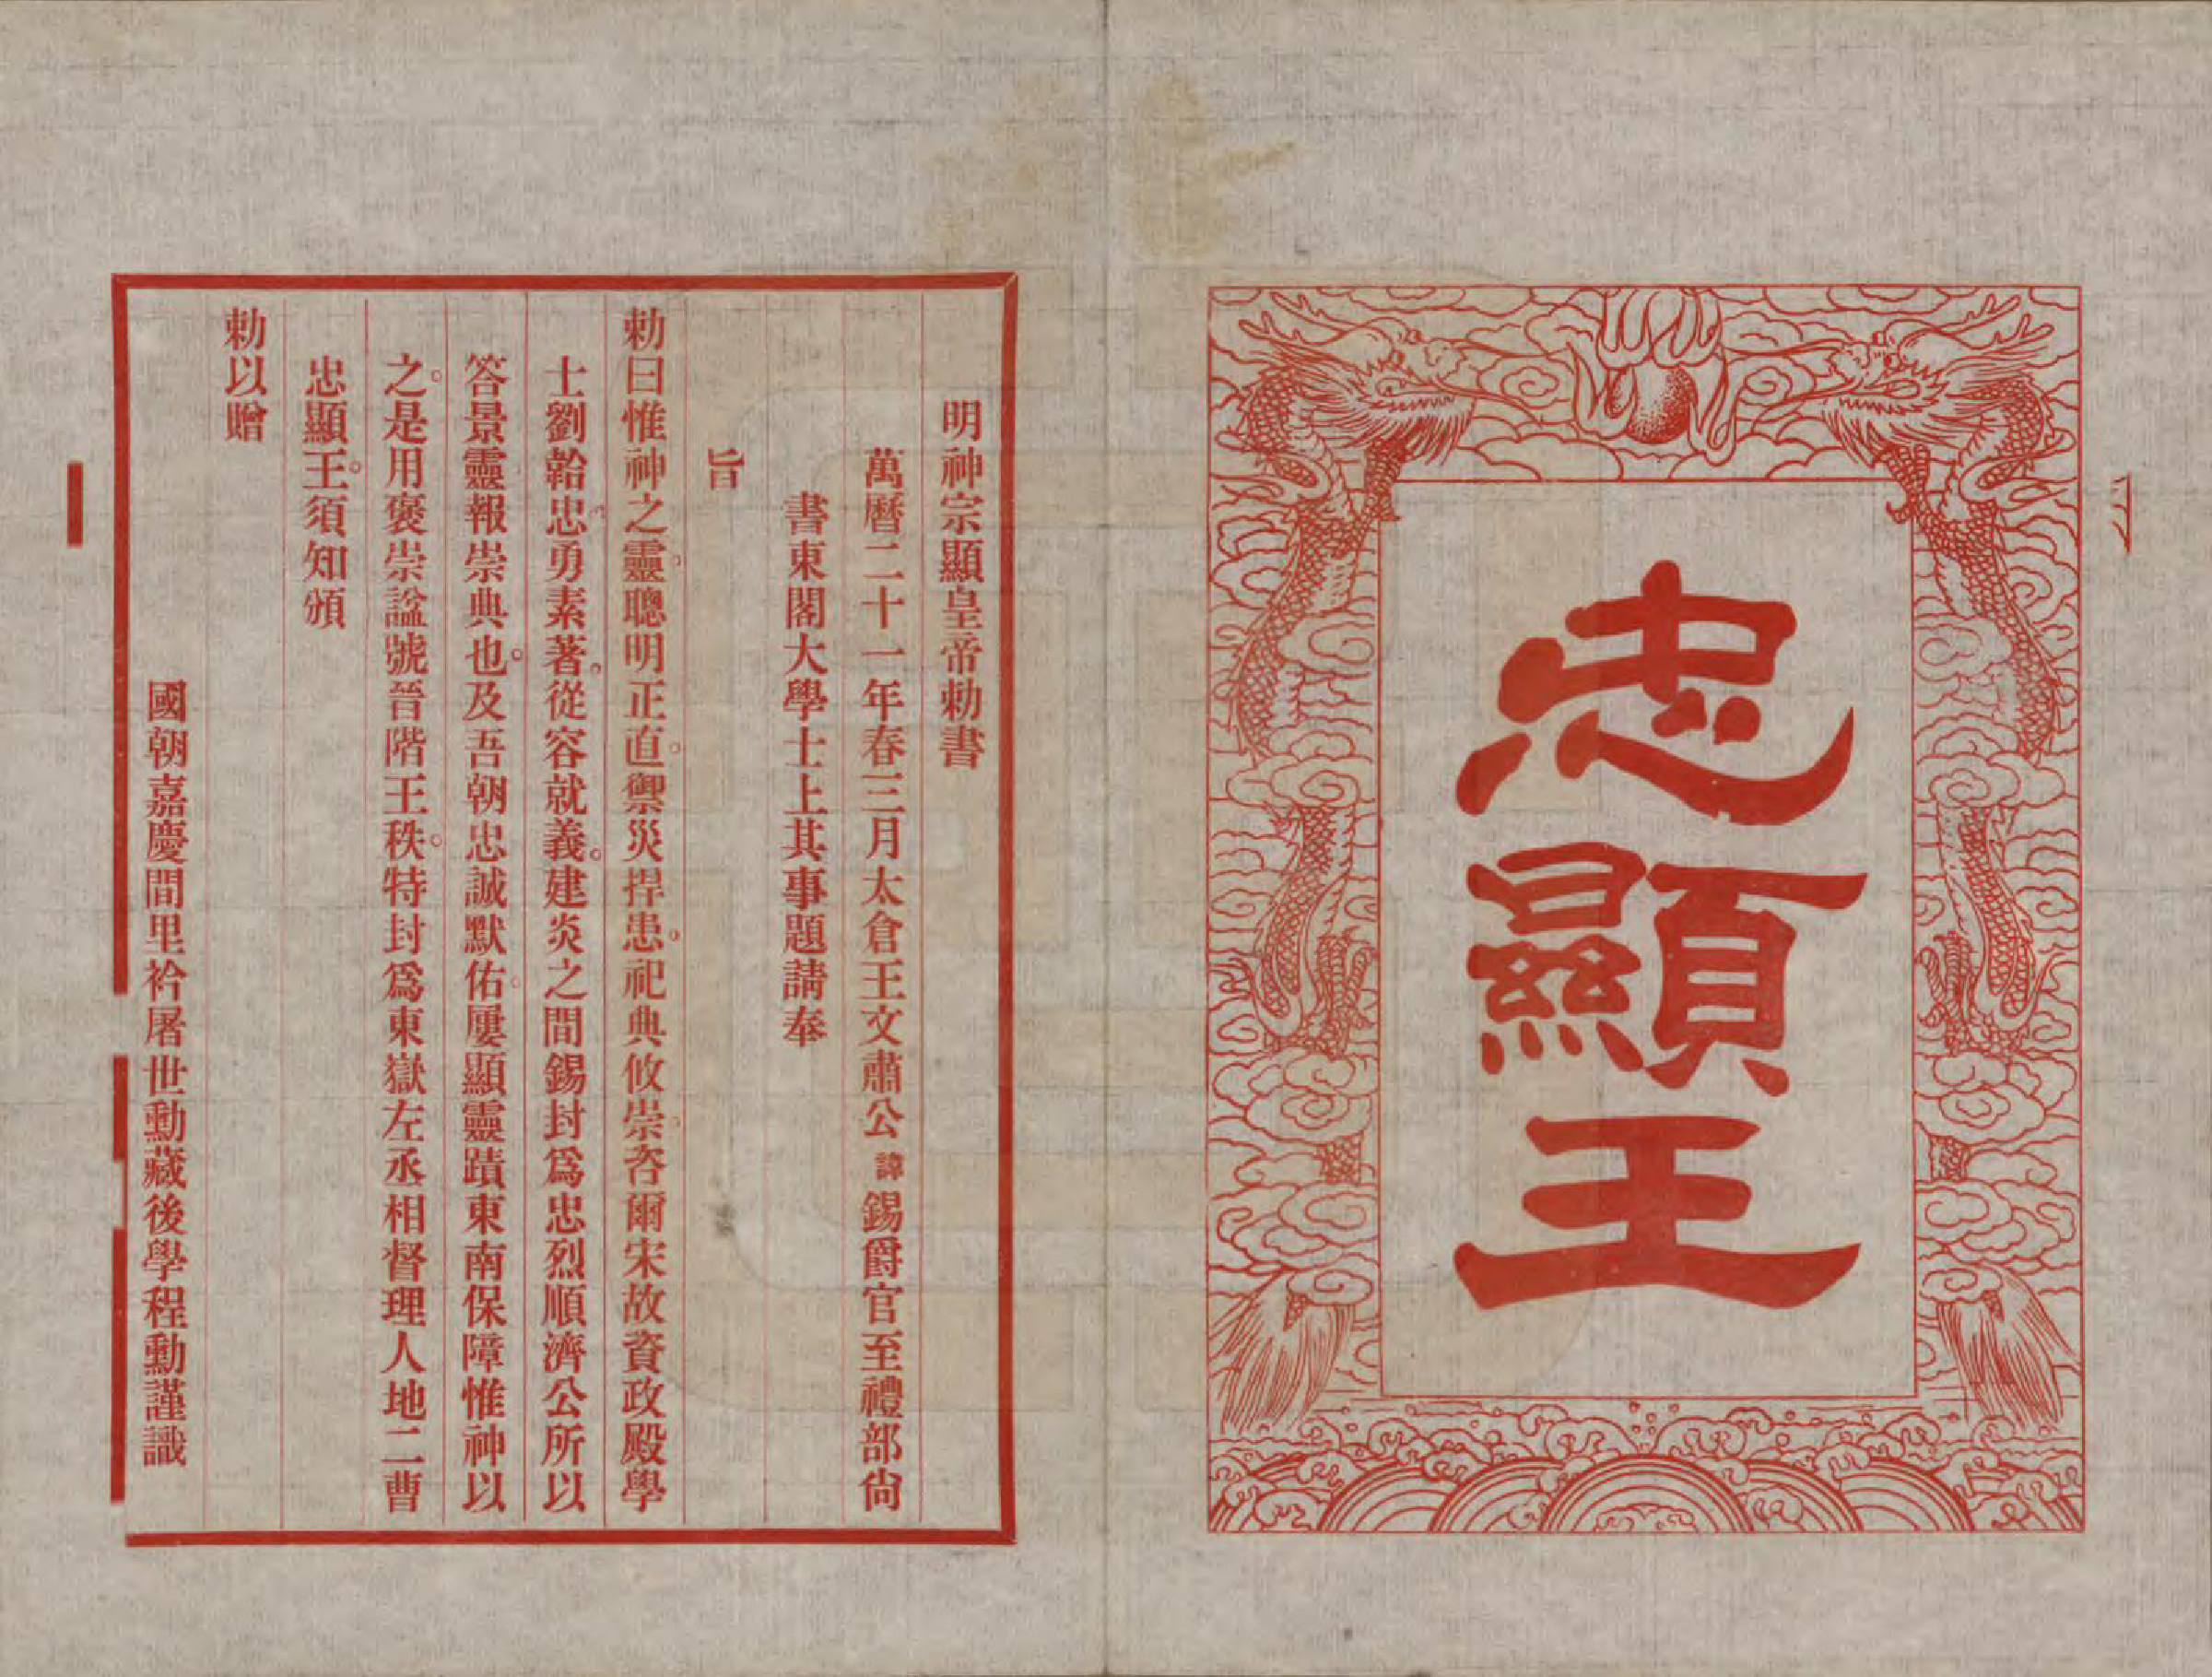 忠顯王
明神宗顯皇帝勅書
萬曆二十一年春三月太倉王文肅公諱錫爵官至禮部尙
書東閣大學士上其事題請奉
旨
勅曰惟神之靈聰明正直禦災捍患祀典攸崇咨爾宋故資政殿學
士劉韐忠勇素著從容就義建炎之間錫封爲忠烈順濟公所以
答景靈報崇典也及吾朝忠誠默佑屢顯靈蹟東南保障惟神以
之是用褒崇謚號晉階王秩特封爲東嶽左丞相督理人地二曹
忠顯王須知頒
勅以贈
國朝嘉慶間里衿屠世勳藏後學程勳謹識